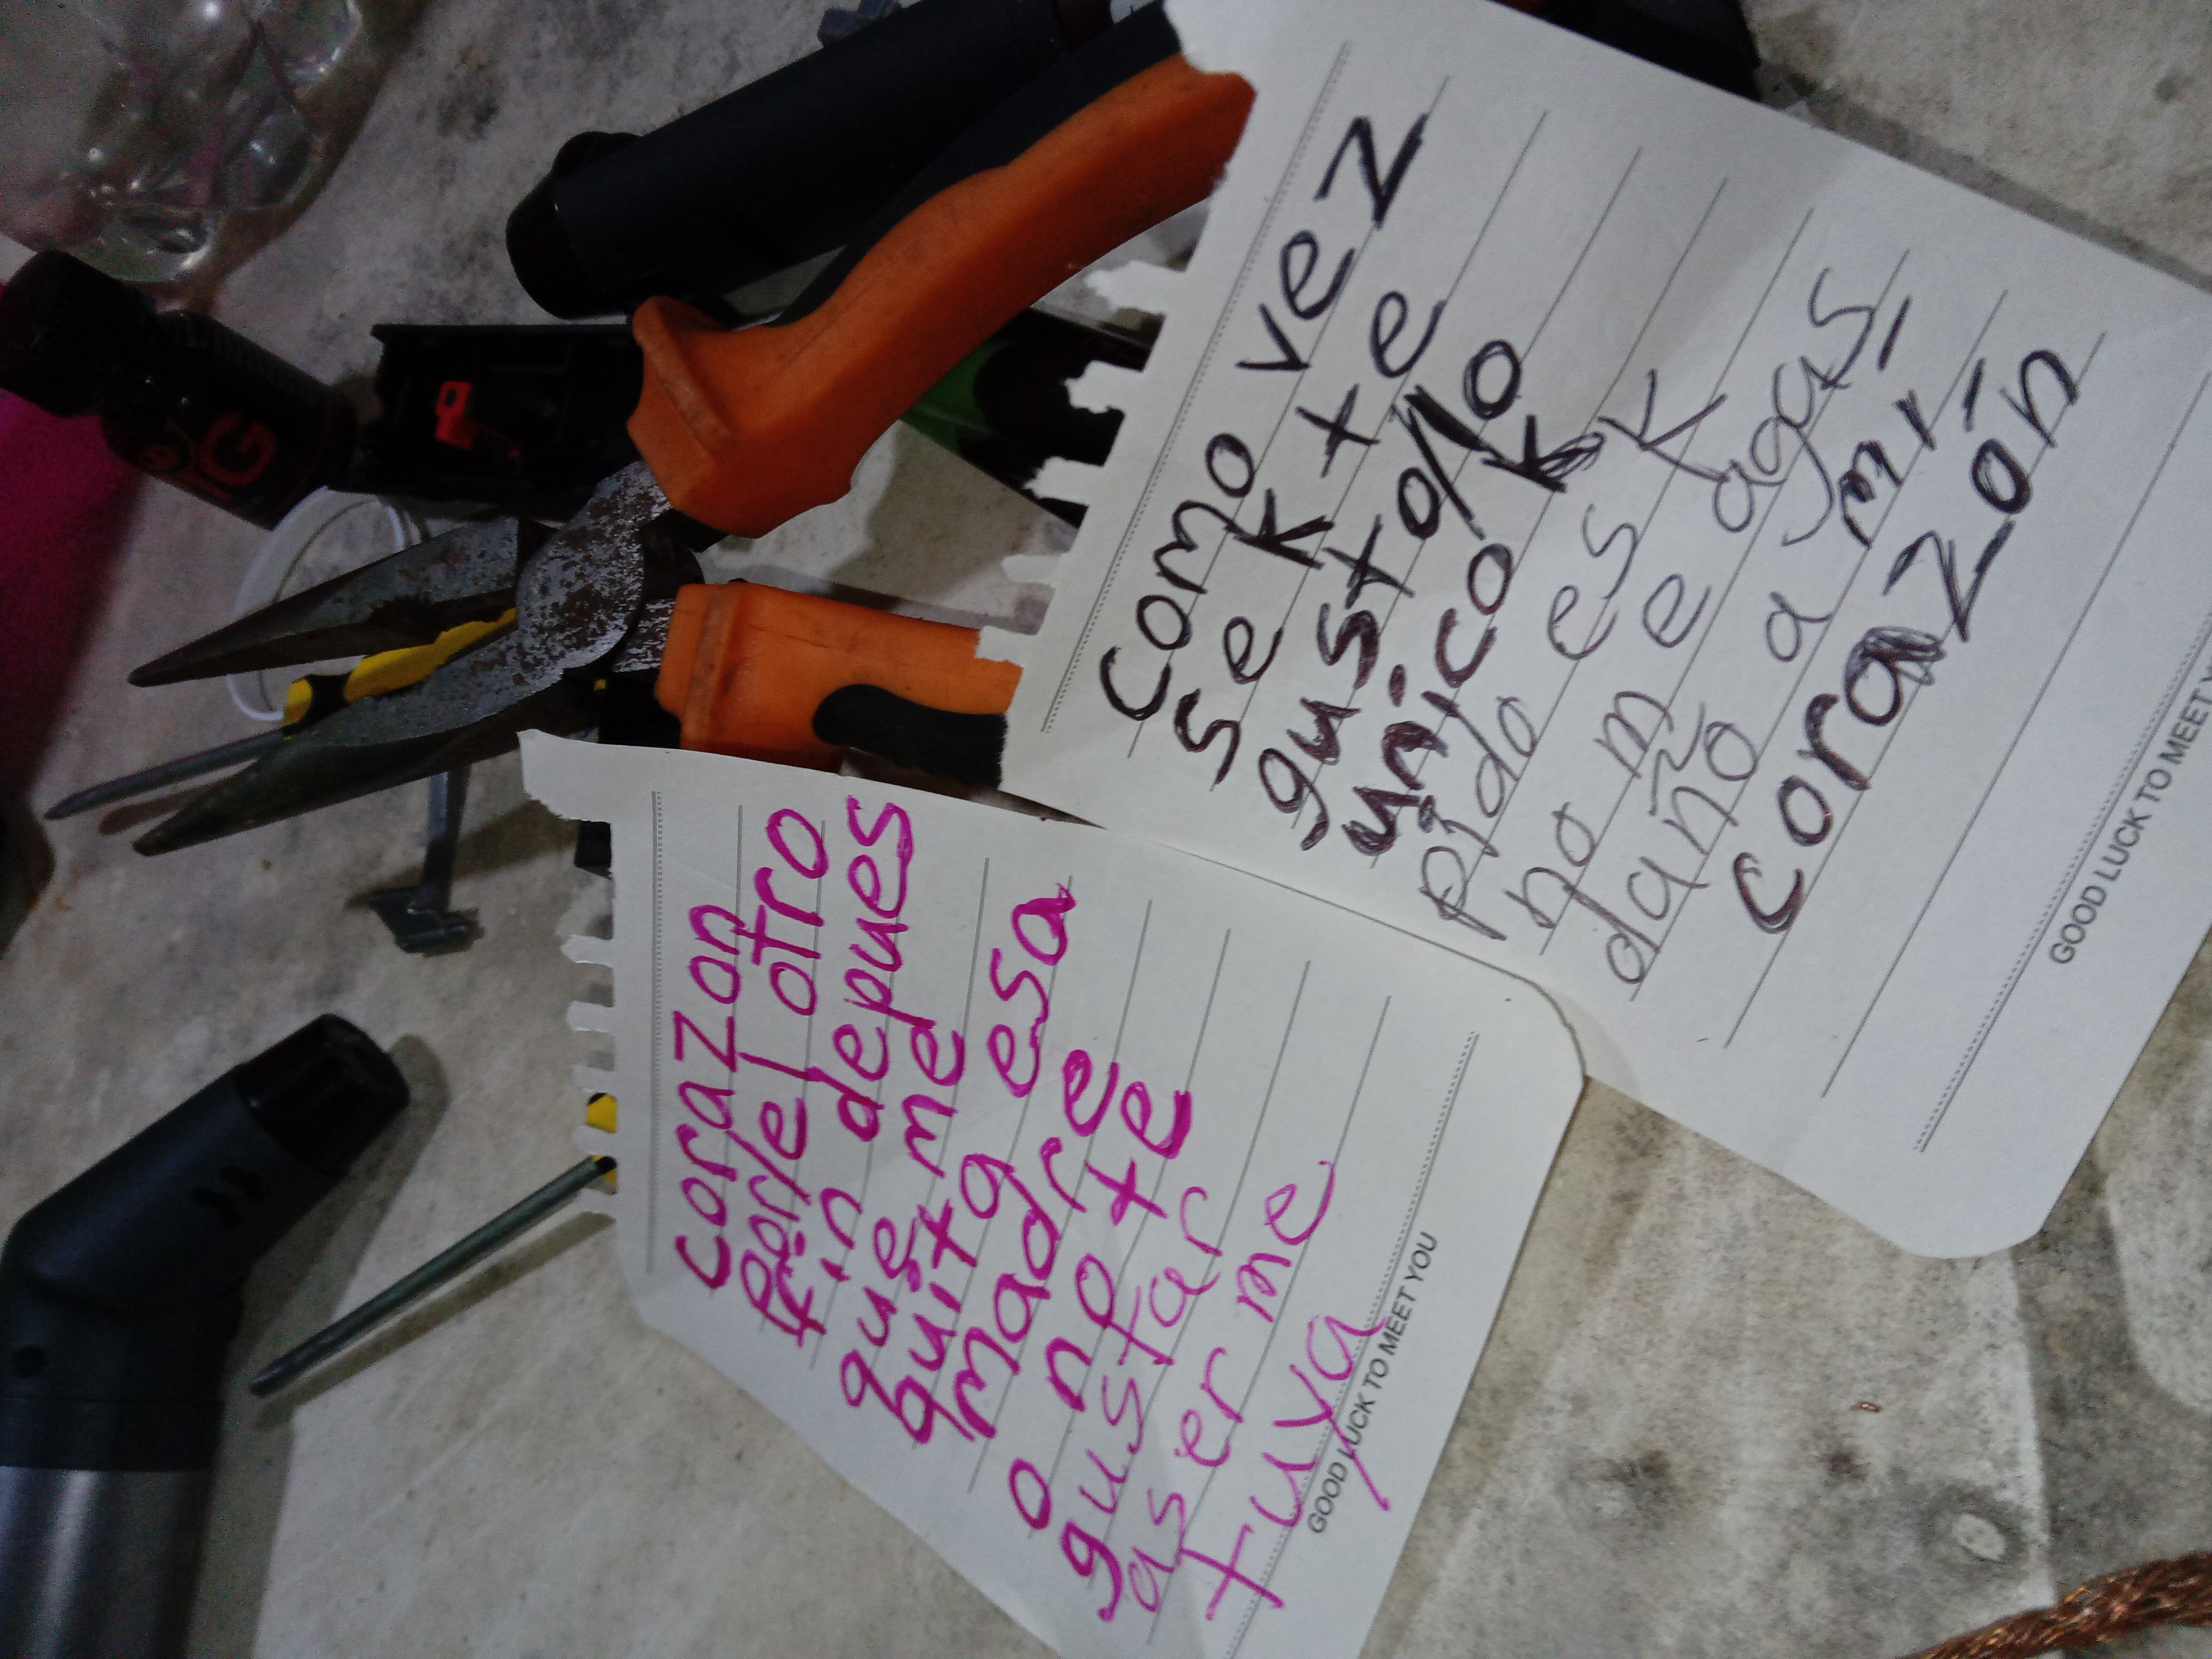 corazon
por/el otro
fin depues
que me
quita esa
madre
o no te
gustar
aser me
tuya
GOOD LUCK TO MEET YOU
como vez
se k te
gusta/lo
unico k
pido es K
no me agas
daño a mi
corazón
GOOD LUCK TO MEET Y
G